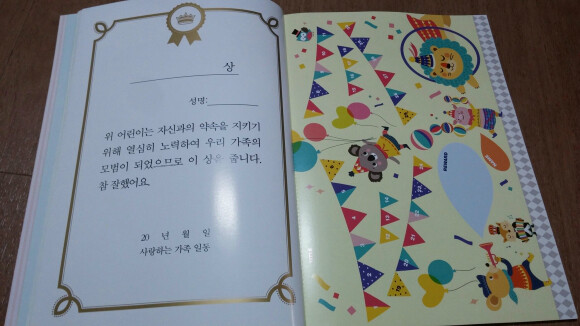 상
성명:
위 어린이는 자신과의 약속을 지키기
위해 열심히 노력하여 우리 가족의
모범이 되었으므로 이 상을 줍니다.
참 잘했어요.
20 년 월 일
사랑하는 가족 일동